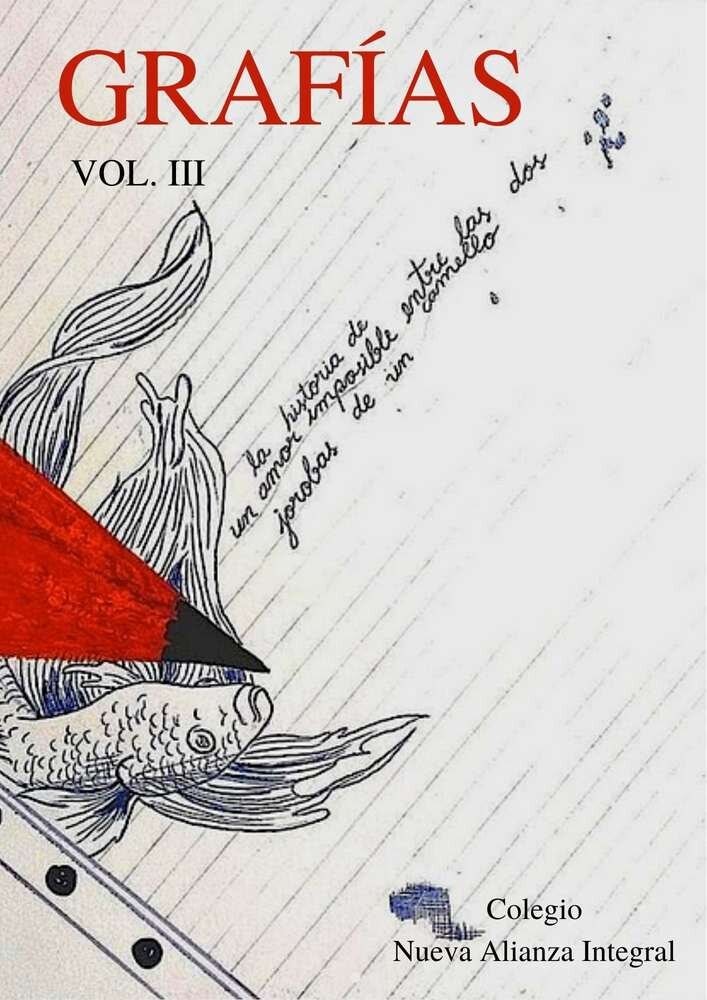 GRAFÍAS
VOL. III
la historia de
un amor imposible entre las dos
jorobas de un camello
Colegio
Nueva Alianza Integral